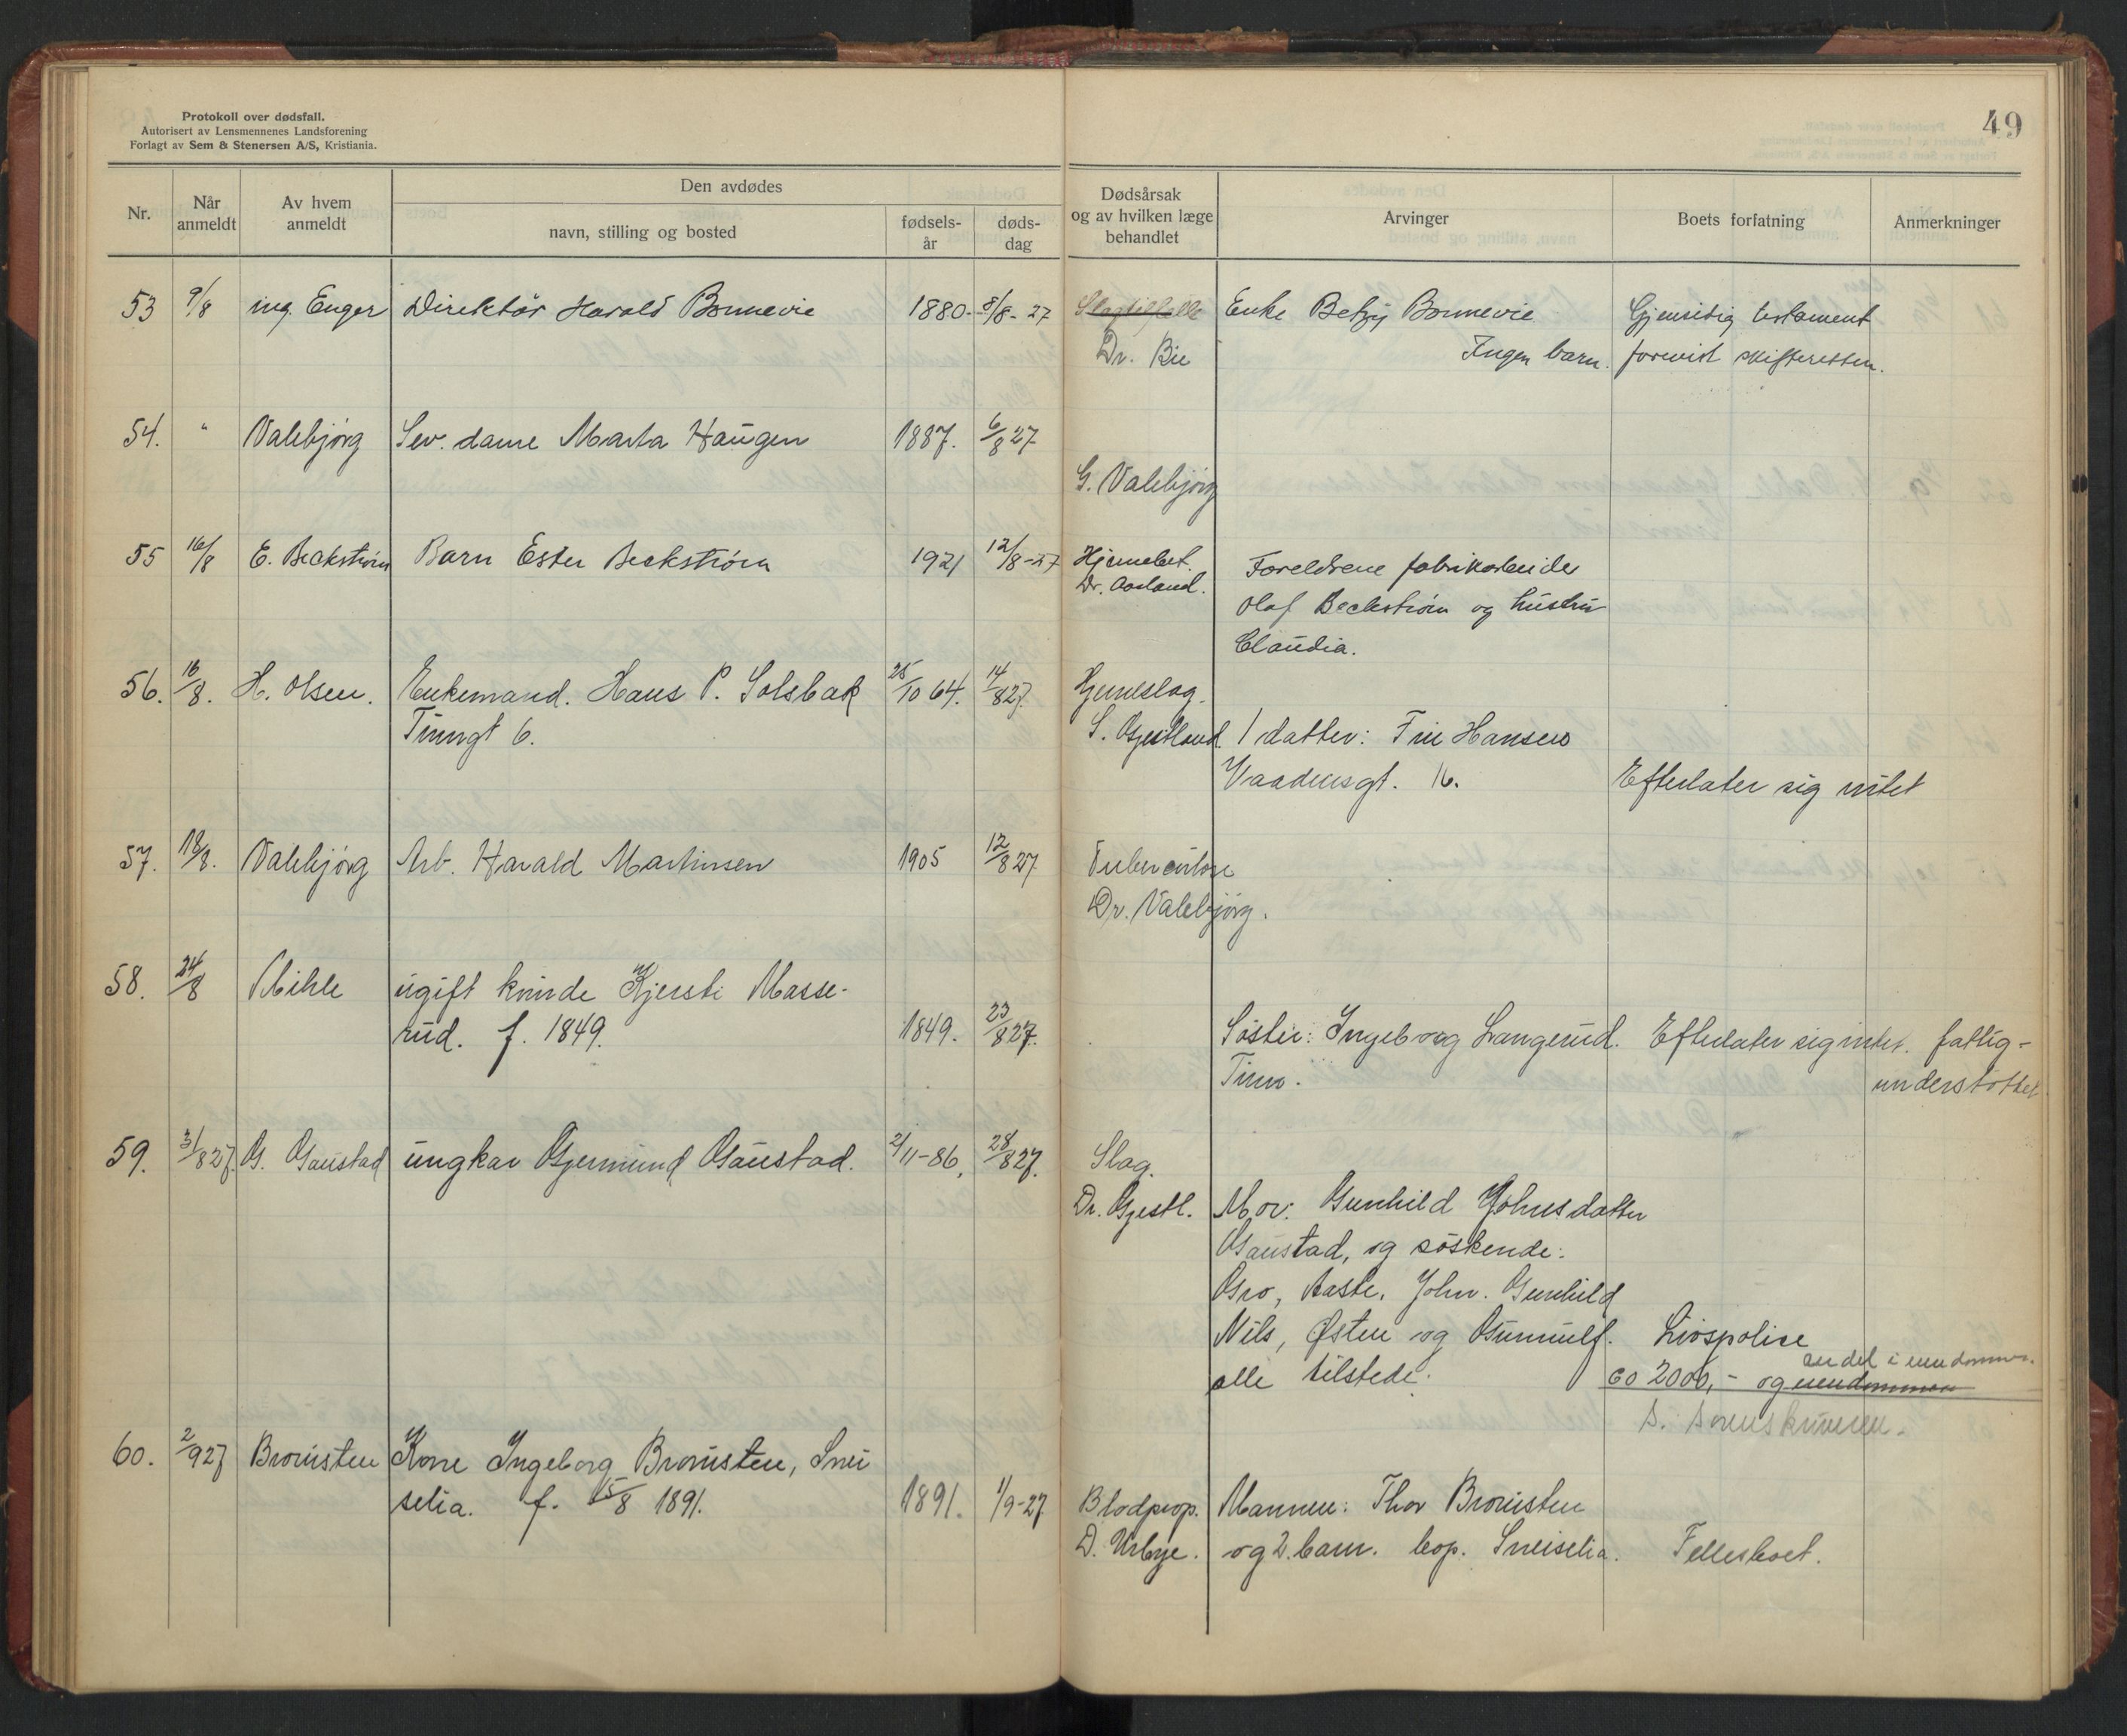 Protokoll over dødsfall.
Autorisert av Lensmennenes Landsforening
Forlagt av Sem & Stenersen A/S, Kristiania.
49
Nr.
Når anmeldt
Av hvem anmeldt
Den avdødes
navn, stilling og bosted
fødsels-år
døds-dag
Dødsårsak og av hvilken læge behandlet
Arvinger
Boets forfatning
Anmerkninger
53 9/8 ing. Enger Direktør Harald Bonnevie 1880 8/8-27 Slagtilfelle Enke Betzy Bonnevie Gjensidig testament
Dr. Bie Ingen barn. forevist skifteretten.
54. " Valebjørg Sev. dame Marta Haugen 1887. 6/8 27
G. Valebjørg
55 16/8 E. Beckstrøm Barn Ester Beckstrøm 1921 12/8-27 Hjernebet. Foreldrene fabrikarbeider
Dr. Aarland.
Olaf Beckstrøm og hustru
Claudia.
56. 16/8. H. Olsen. Enkemand. Hans P. Solsbak 25/10 64. 14/8 27. Hjerneslag.
Tinngt 6. S. Gjestland. 1 datter: Fru Hansen
Vaadensgt. 16. Efterlater sig intet
57. 18/8. Valebjørg Arb. Harald Martinsen 1905 12/8 27. Tuberculose
Dr. Valebjørg.
58. 24/8 Mihle ugift kvinde Kjersti Masse-
rud. f. 1849. 1849. 23/8 27. Søster: Ingeborg Langerud. Efterlater sig intet. fattig-
Tinn. understøttet
59. 31/8 27. G. Gaustad ungkar Gjermund Gaustad. 2/11-86. 28/8 27. Slag.
Dr. Gjestl. Mor: Gunhild Johnsdatter
Gaustad, og søskende:
Gro, Aaste, John. Gunhild
Nils, Østen og Gunnulf. Livspolise
andel i eiendommen.
alle tilstede. ca 2000,- og eiendommen
S. Sorenskriveren.
60. 2/9 27 Brouisten Kone Ingeborg Brouisten, Snei
selia. f. 15/8 1891. 1891. 1/9-27 Blodprop. Mannen: Thor Brouisten
D. Urbye. og 2 barn. bop. Sneiselia. Fellesboet.